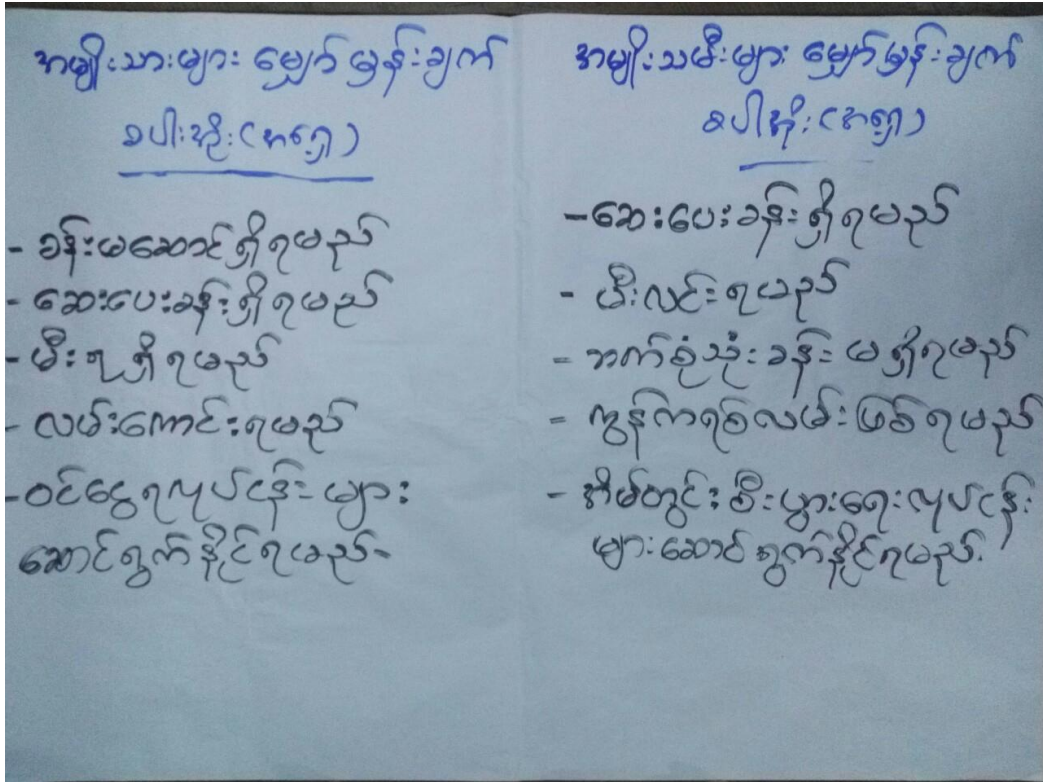 အမျိုးသားများ မျှော်မှန်းချက်
စပါးအိုး(အရှေ့)
- ခန်းမဆောင်ရှိရမည်
- ဆေးပေးခန်းရှိရမည်
- မီးရရှိရမည်
- လမ်းကောင်းရမည်
- ဝင်ငွေရလုပ်ငန်းများ
ဆောင်ရွက်နိုင်ရမည်-
အမျိုးသမီးများ မျှော်မှန်းချက်
စပါအိုး(အရှေ့)
- ဆေးပေးခန်းရှိရမည်
- မီးလင်းရမည်
- ဘက်စုံသုံးခန်းမရှိရမည်
- ကွန်ကရစ်လမ်းဖြစ်ရမည်
- အိမ်တွင်းစီးပွားရေးလုပ်ငန်း
များဆောင်ရွက်နိုင်ရမည်.